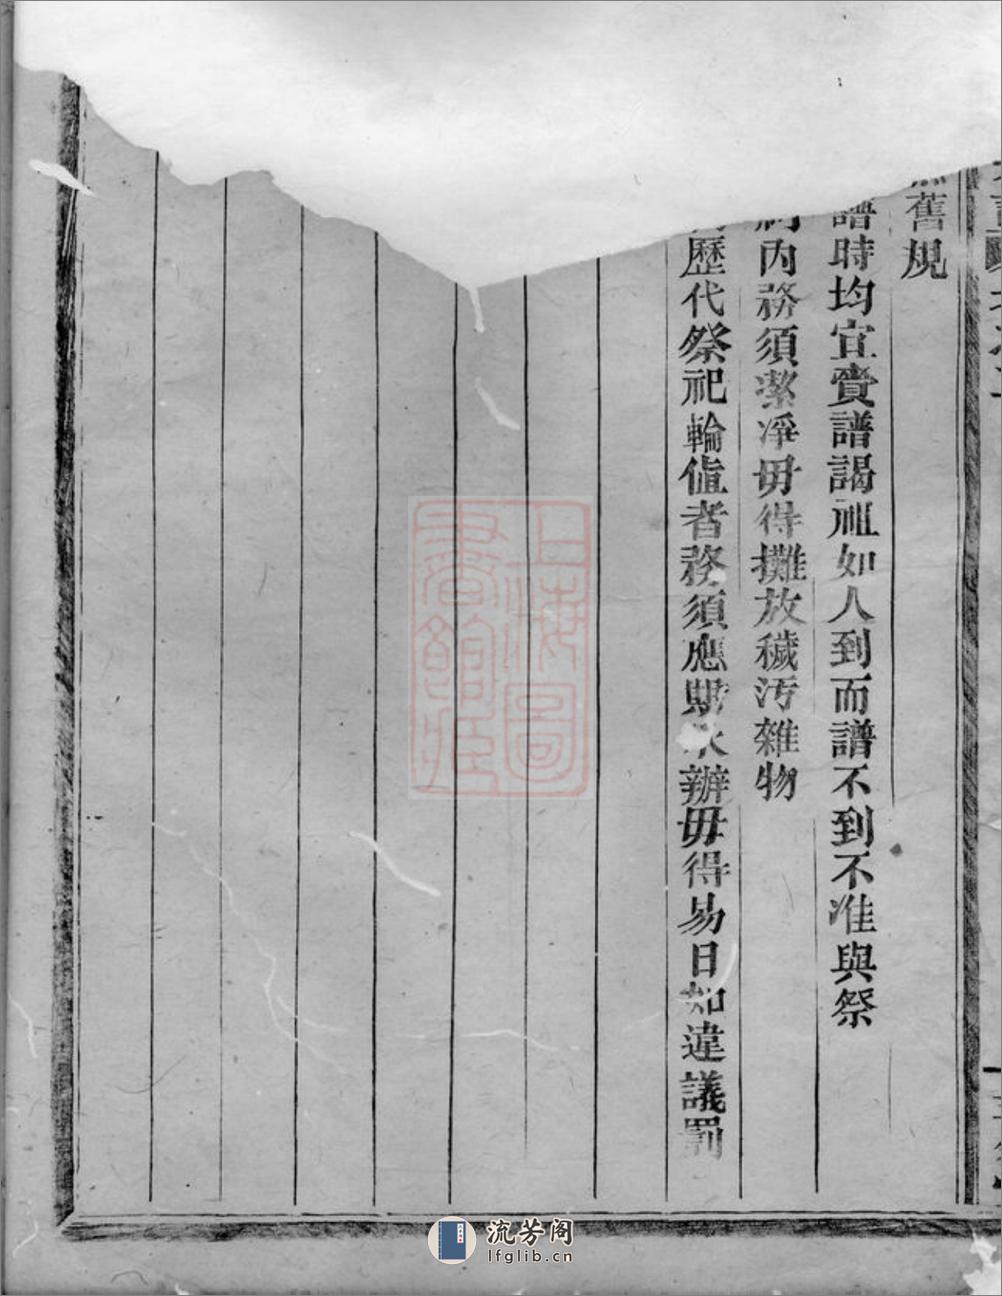 舊規
譜時均宜賷譜謁祖如人到而譜不到不准與祭
祠內務須潔淨毋得攤放穢污雜物
歷代祭祀輪值者務須應期承辦毋得易日如違議罰
上海圖書館藏
流芳阁
lfglib.cn